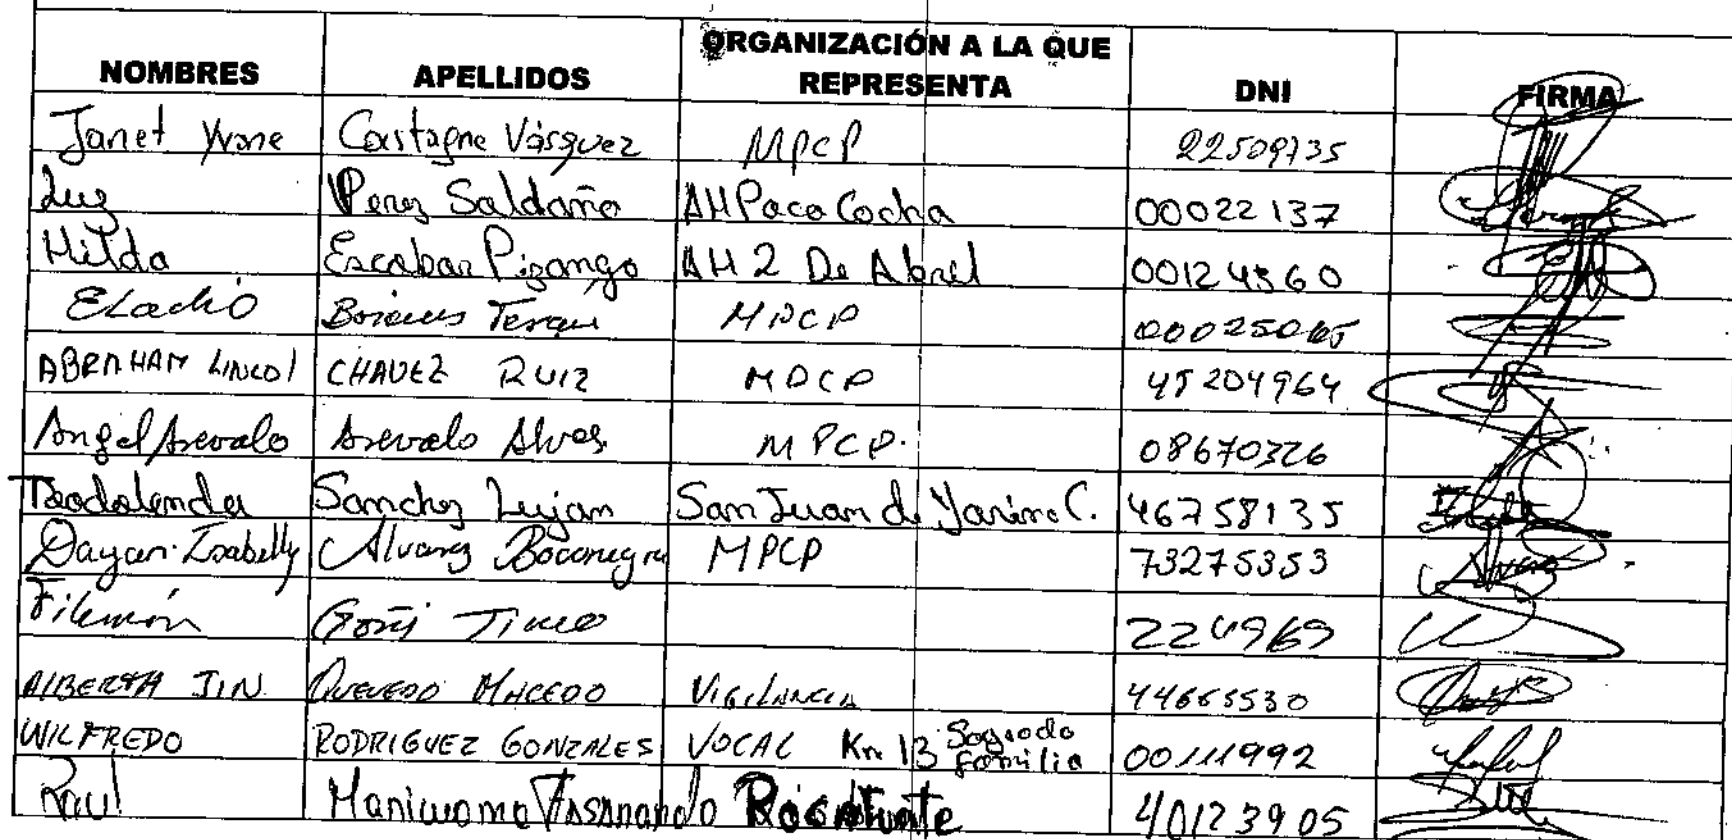 NOMBRES APELLIDOS ORGANIZACIÓN A LA QUE REPRESENTA DNI FIRMA
Janet Yvone Castagne Vásquez MPCP 22509735
Luz Perez Saldaña AH Paca Cocha 00022137
Hilda Escobar Pizango AH 2 De Abril 00124560
Eladio MPCP
ABRAHAM LINCOL CHAVEZ RUIZ MPCP 45204964
Angel Arevalo Arevalo Alves MPCP. 08670326
Teodolenda Sanchez Lujan San Juan de Yarina C. 46758135
Dayan Isabelly Alvarez Bocanegra MPCP 73275353
Filemón Goñi 224969
ALBERTH JIN QUEVEDO MACEDO VIGILANCIA 44665530
WILFREDO RODRIGUEZ GONZALES VOCAL Km 13 Sagrada familia 00111992
Raul 40123905